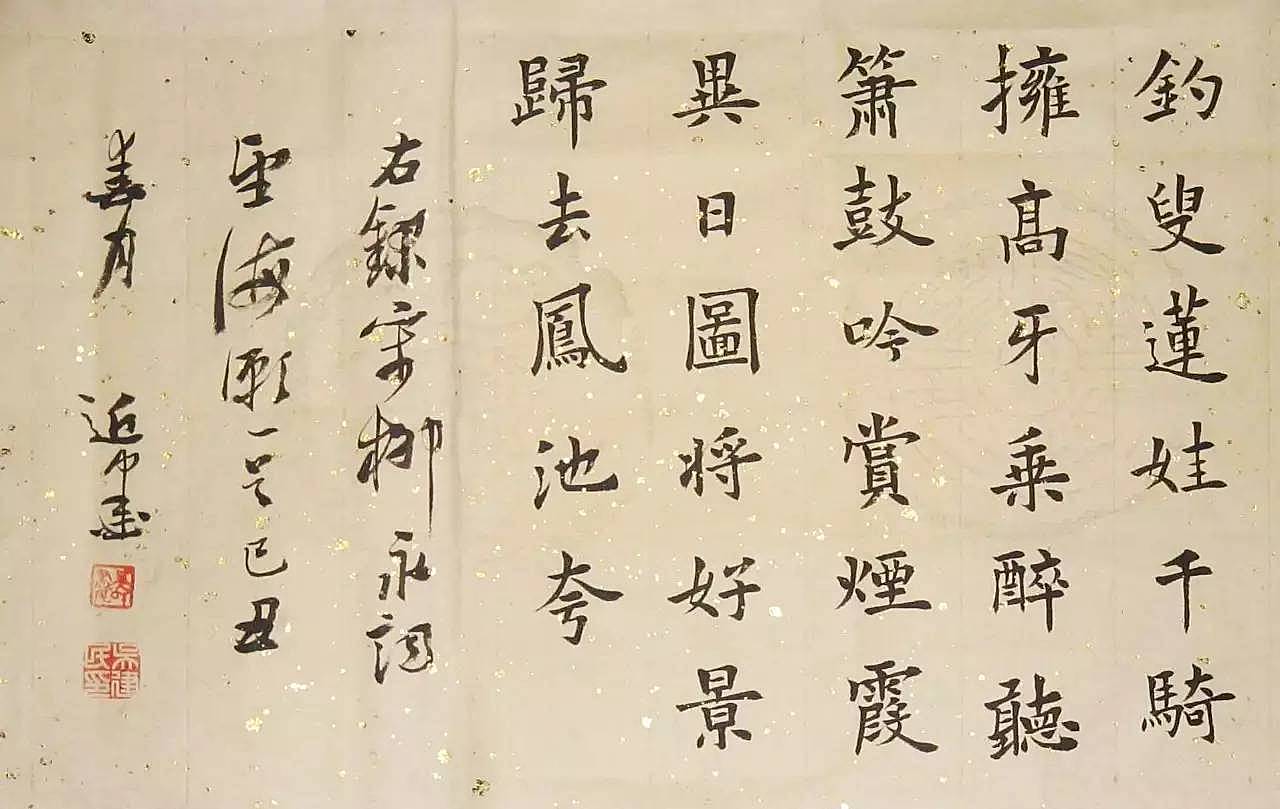 釣叟蓮娃千騎
擁髙牙乘醉聽
簫鼓吟賞煙霞
異日圖將好景
歸去鳳池夸
右錄宋柳永詞
望海潮一首己丑
春月
吳建民印